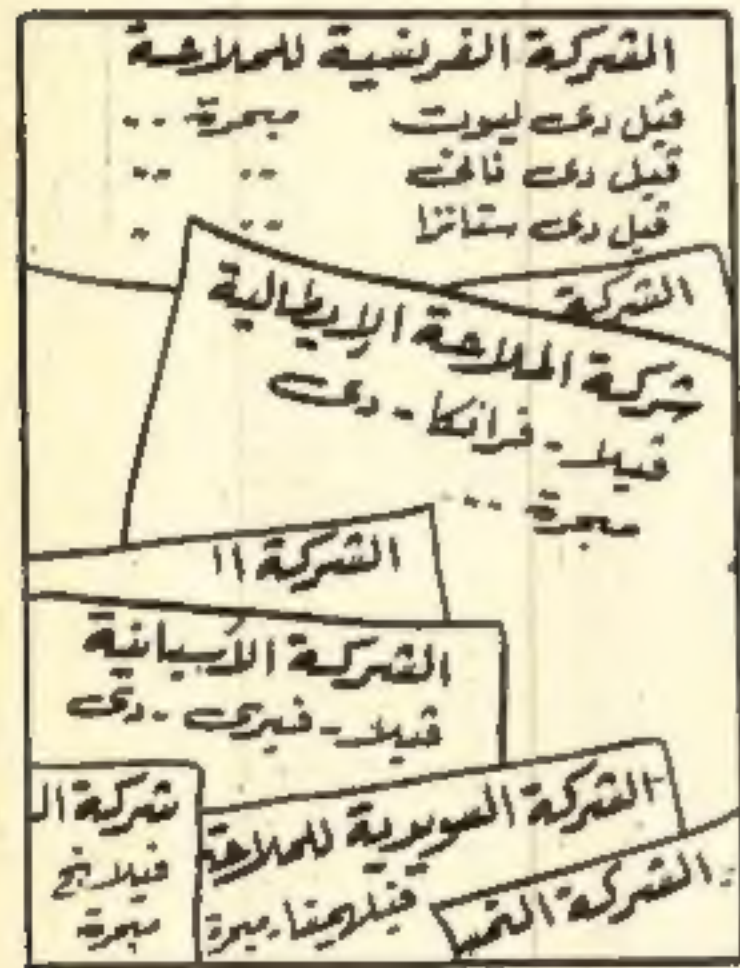 الشركة الفرنسية للملاحة
ڤيل دى ليوت مبحرة ..
ڤيل دى نالف .. ..
ڤيل دى ستانزا .. ..
الشركة
شركة الملاحة الإيطالية
ڤيلا - فرانكا - دى
مبحرة ...
الشركة ال
الشركة الأسبانية
ڤيلا - فيرى - دى
شركة ال
فيلانج
مبحرة
الشركة السويدية للملاحة
ڤيلهمينا مبحرة
الشركة النمسا